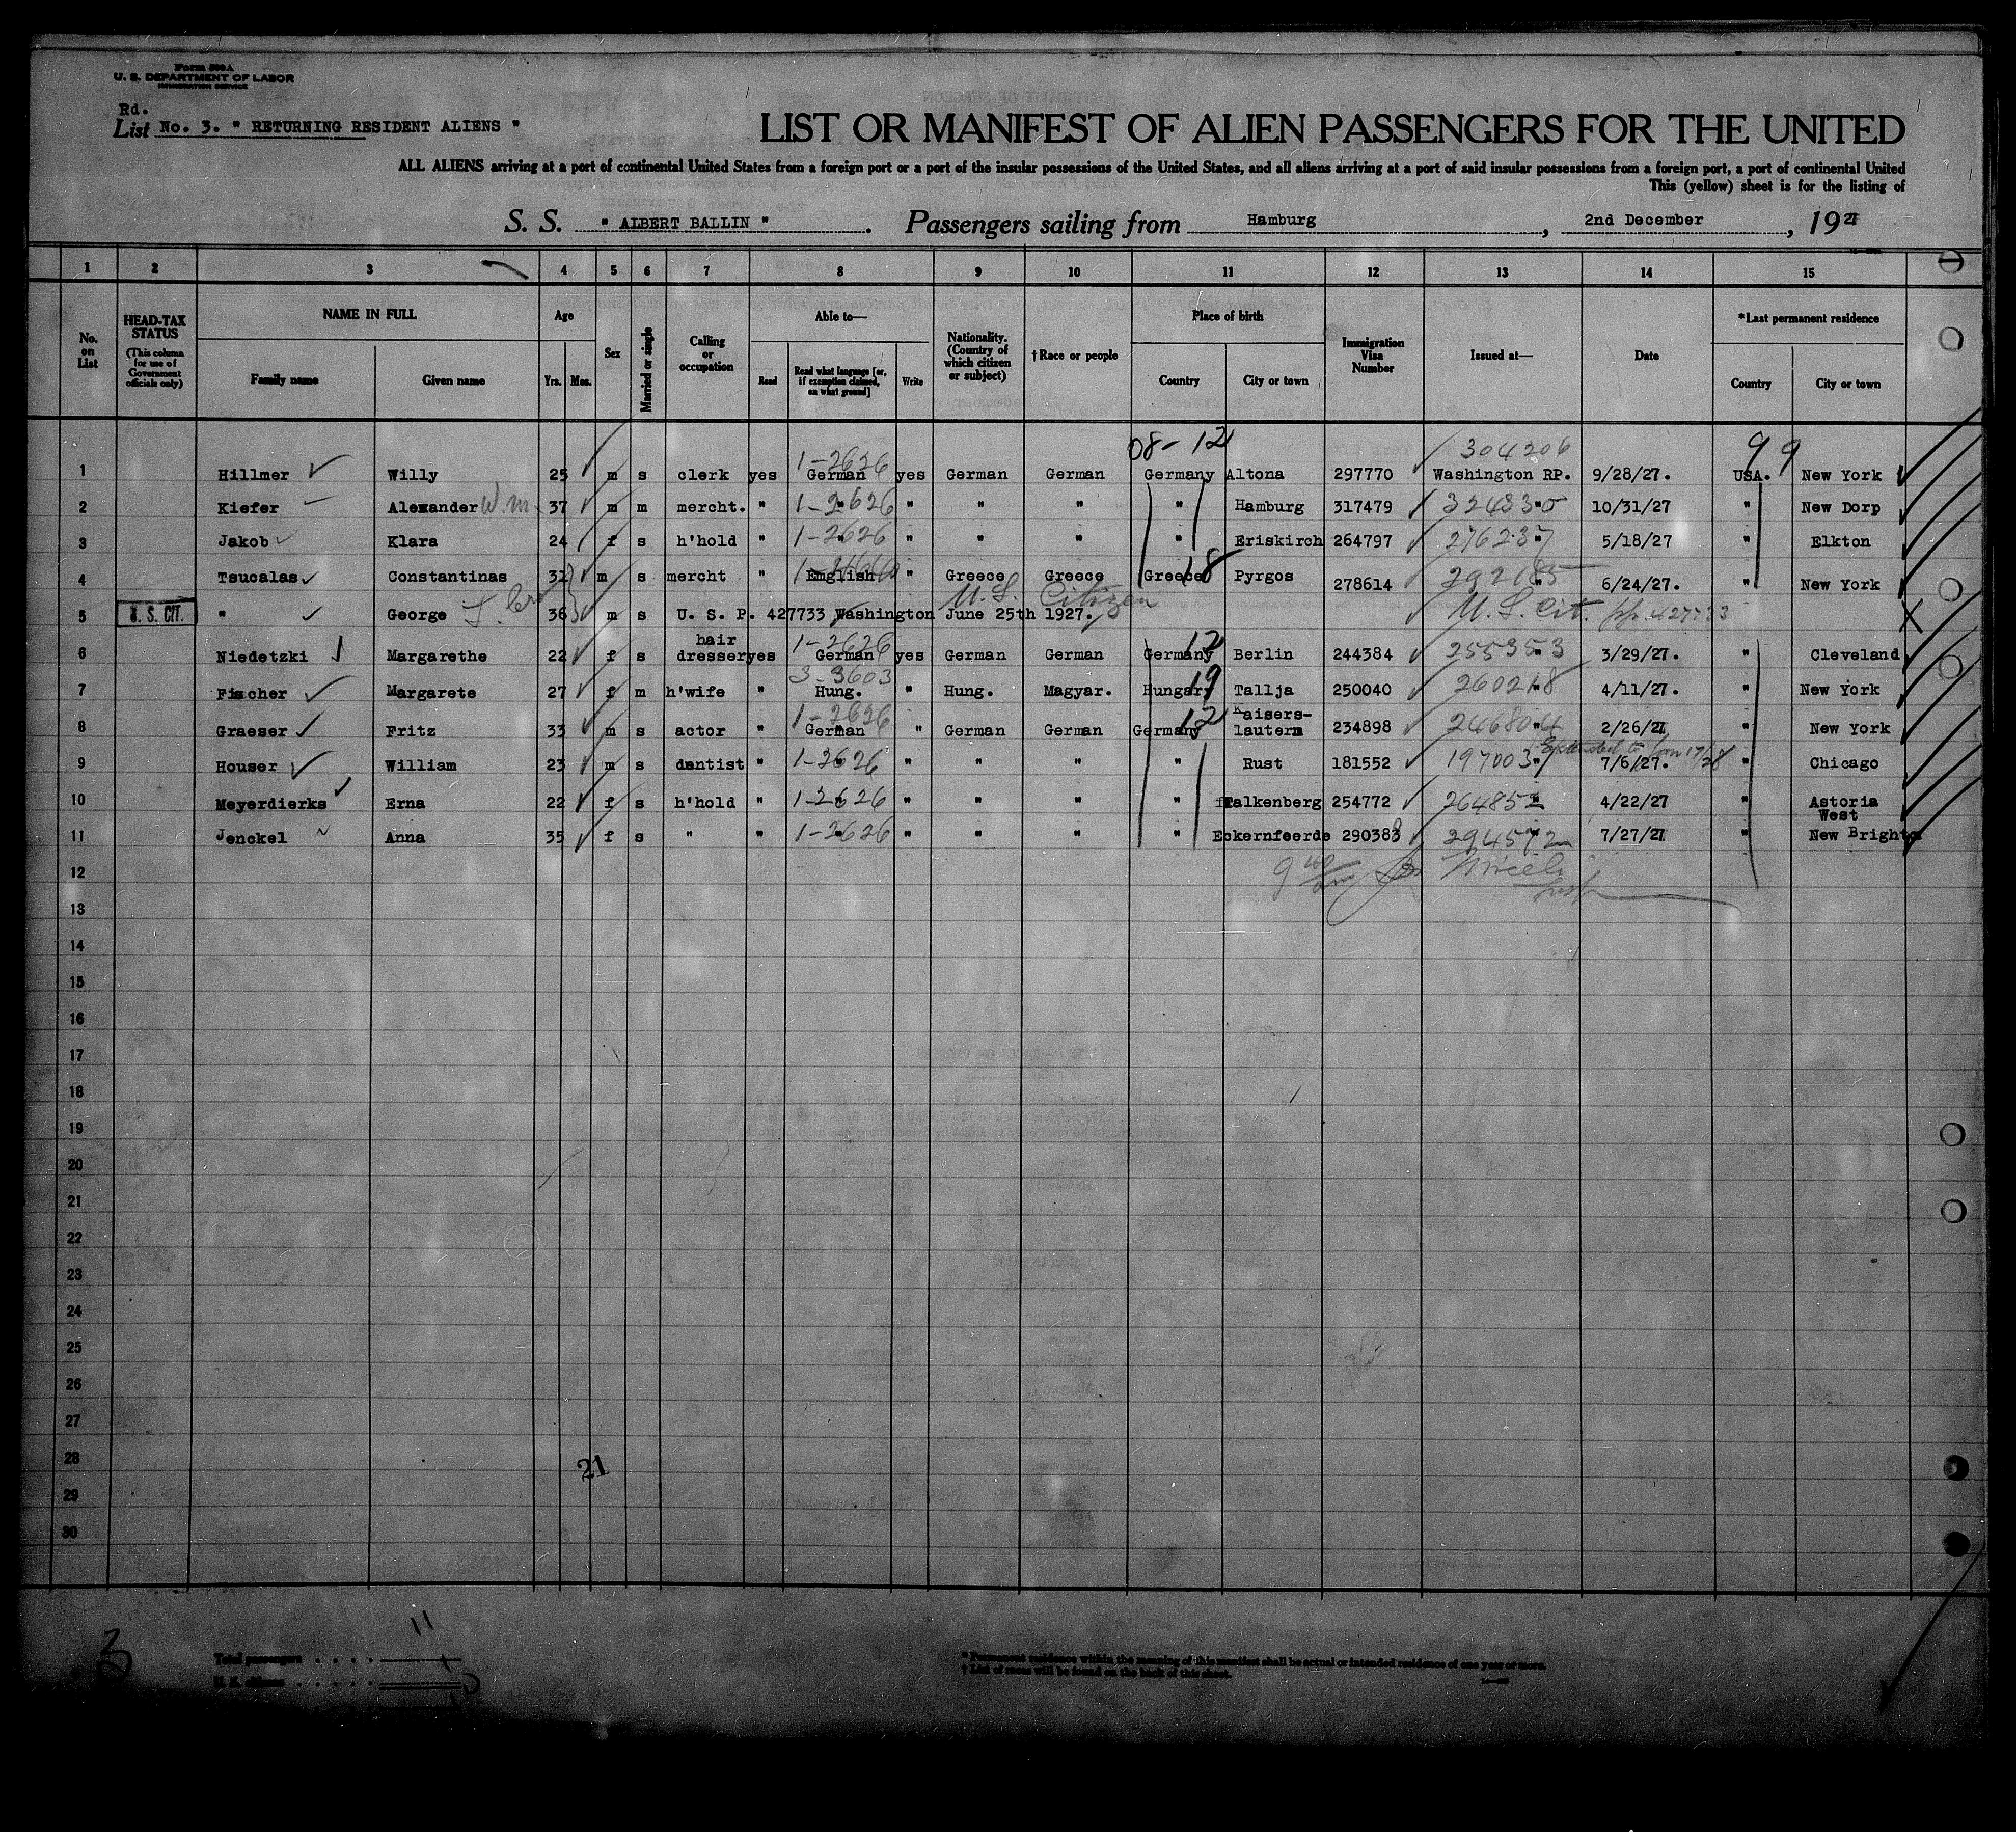 Form 500A
U. S. DEPARTMENT OF LABOR
IMMIGRATION SERVICE
Rd.
List No. 3. " RETURNING RESIDENT ALIENS "
LIST OR MANIFEST OF ALIEN PASSENGERS FOR THE UNITED
ALL ALIENS arriving at a port of continental United States from a foreign port or a port of the insular possessions of the United States, and all aliens arriving at a port of said insular possessions from a foreign port, a port of continental United
This (yellow) sheet is for the listing of
S. S. " ALBERT BALLIN ". Passengers sailing from Hamburg, 2nd December, 1927
1 2 3 4 5 6 7 8 9 10 11 12 13 14 15
No. on List
HEAD-TAX STATUS (This column for use of Government officials only)
NAME IN FULL
Family name Given name
Age
Yrs. Mos.
Sex
Married or single
Calling or occupation
Able to—
Read Read what language [or, if exemption claimed, on what ground] Write
Nationality. (Country of which citizen or subject)
†Race or people
Place of birth
Country City or town
Immigration Visa Number
Issued at—
Date
*Last permanent residence
Country City or town
08- 12 304206 9 9
1-2626
1 Hillmer Willy 25 m s clerk yes German yes German German Germany Altona 297770 Washington RP. 9/28/27. USA. New York
2 Kiefer Alexander Wm. 37 m m mercht. " 1-2626 " " " " Hamburg 317479 324330 10/31/27 " New Dorp
3 Jakob Klara 24 f s h'hold " 1-2626 " " " " Eriskirch 264797 276237 5/18/27 " Elkton
4 Tsucalas Constantinas 31 m s mercht " English " Greece Greece Greece 18 Pyrgos 278614 292185 6/24/27. " New York
U.S. Citizen
5 U. S. CIT. " George 36 m s U. S. P. 427733 Washington June 25th 1927. U.S. Cit. pp. 427733 X
hair 1-2626 12
6 Niedetzki Margarethe 22 f s dresser yes German yes German German Germany Berlin 244384 255353 3/29/27. " Cleveland
3-3603 19
7 Fischer Margarete 27 f m h'wife " Hung. " Hung. Magyar. Hungary Tallja 250040 260218 4/11/27. " New York
1-2626 12 Kaisers-
8 Graeser Fritz 33 m s actor " German " German German Germany lautern 234898 246804 2/26/27 " New York
Extended to Jan 17/28
9 Houser William 23 m s dentist " 1-2626 " " " " Rust 181552 197003 7/6/27. " Chicago
10 Meyerdierks Erna 22 f s h'hold " 1-2626 " " " " Falkenberg 254772 264852 4/22/27 " Astoria
West
11 Jenckel Anna 35 f s " " 1-2626 " " " " Eckernfeerde 290383 294572 7/27/27 " New Brighton
12
13
14
15
16
17
18
19
20
21
22
23
24
25
26
27
28
21
29
30
3
11
Total passengers
U. S. citizens
* Permanent residence within the meaning of this manifest shall be actual or intended residence of one year or more.
† List of races will be found on the back of this sheet.